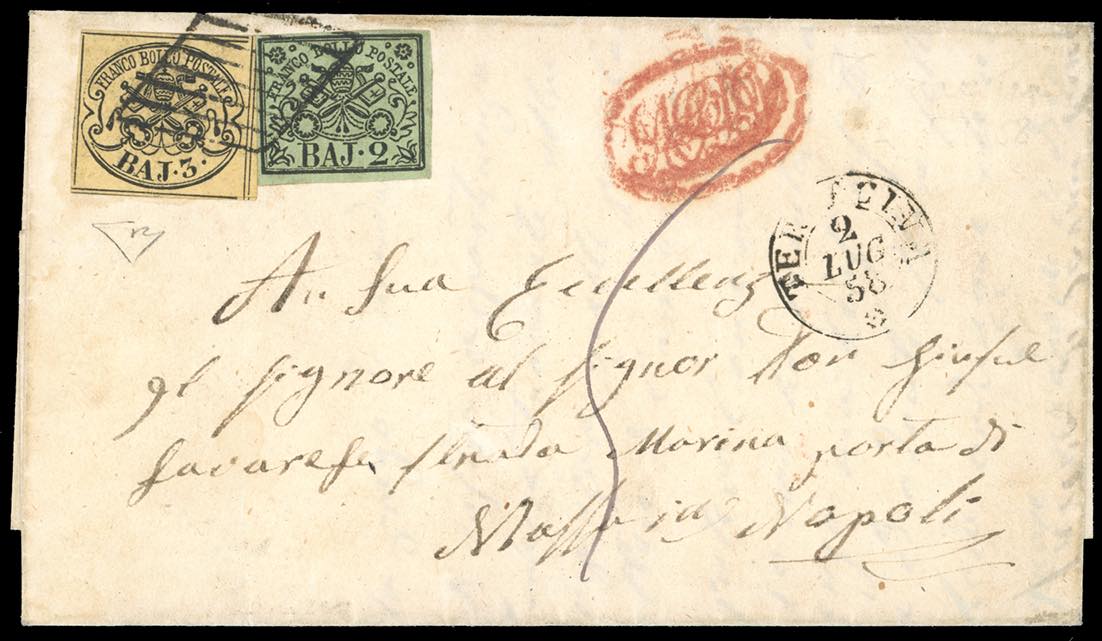 FRANCO BOLLO POSTALE
BAJ·3·
FRANCO BOLLO POSTALE
BAJ·2
2
LUG
58
A Sua Eccellenz
Il Signore al Signor Don
Savarese Strada Marina porta di
Napoli